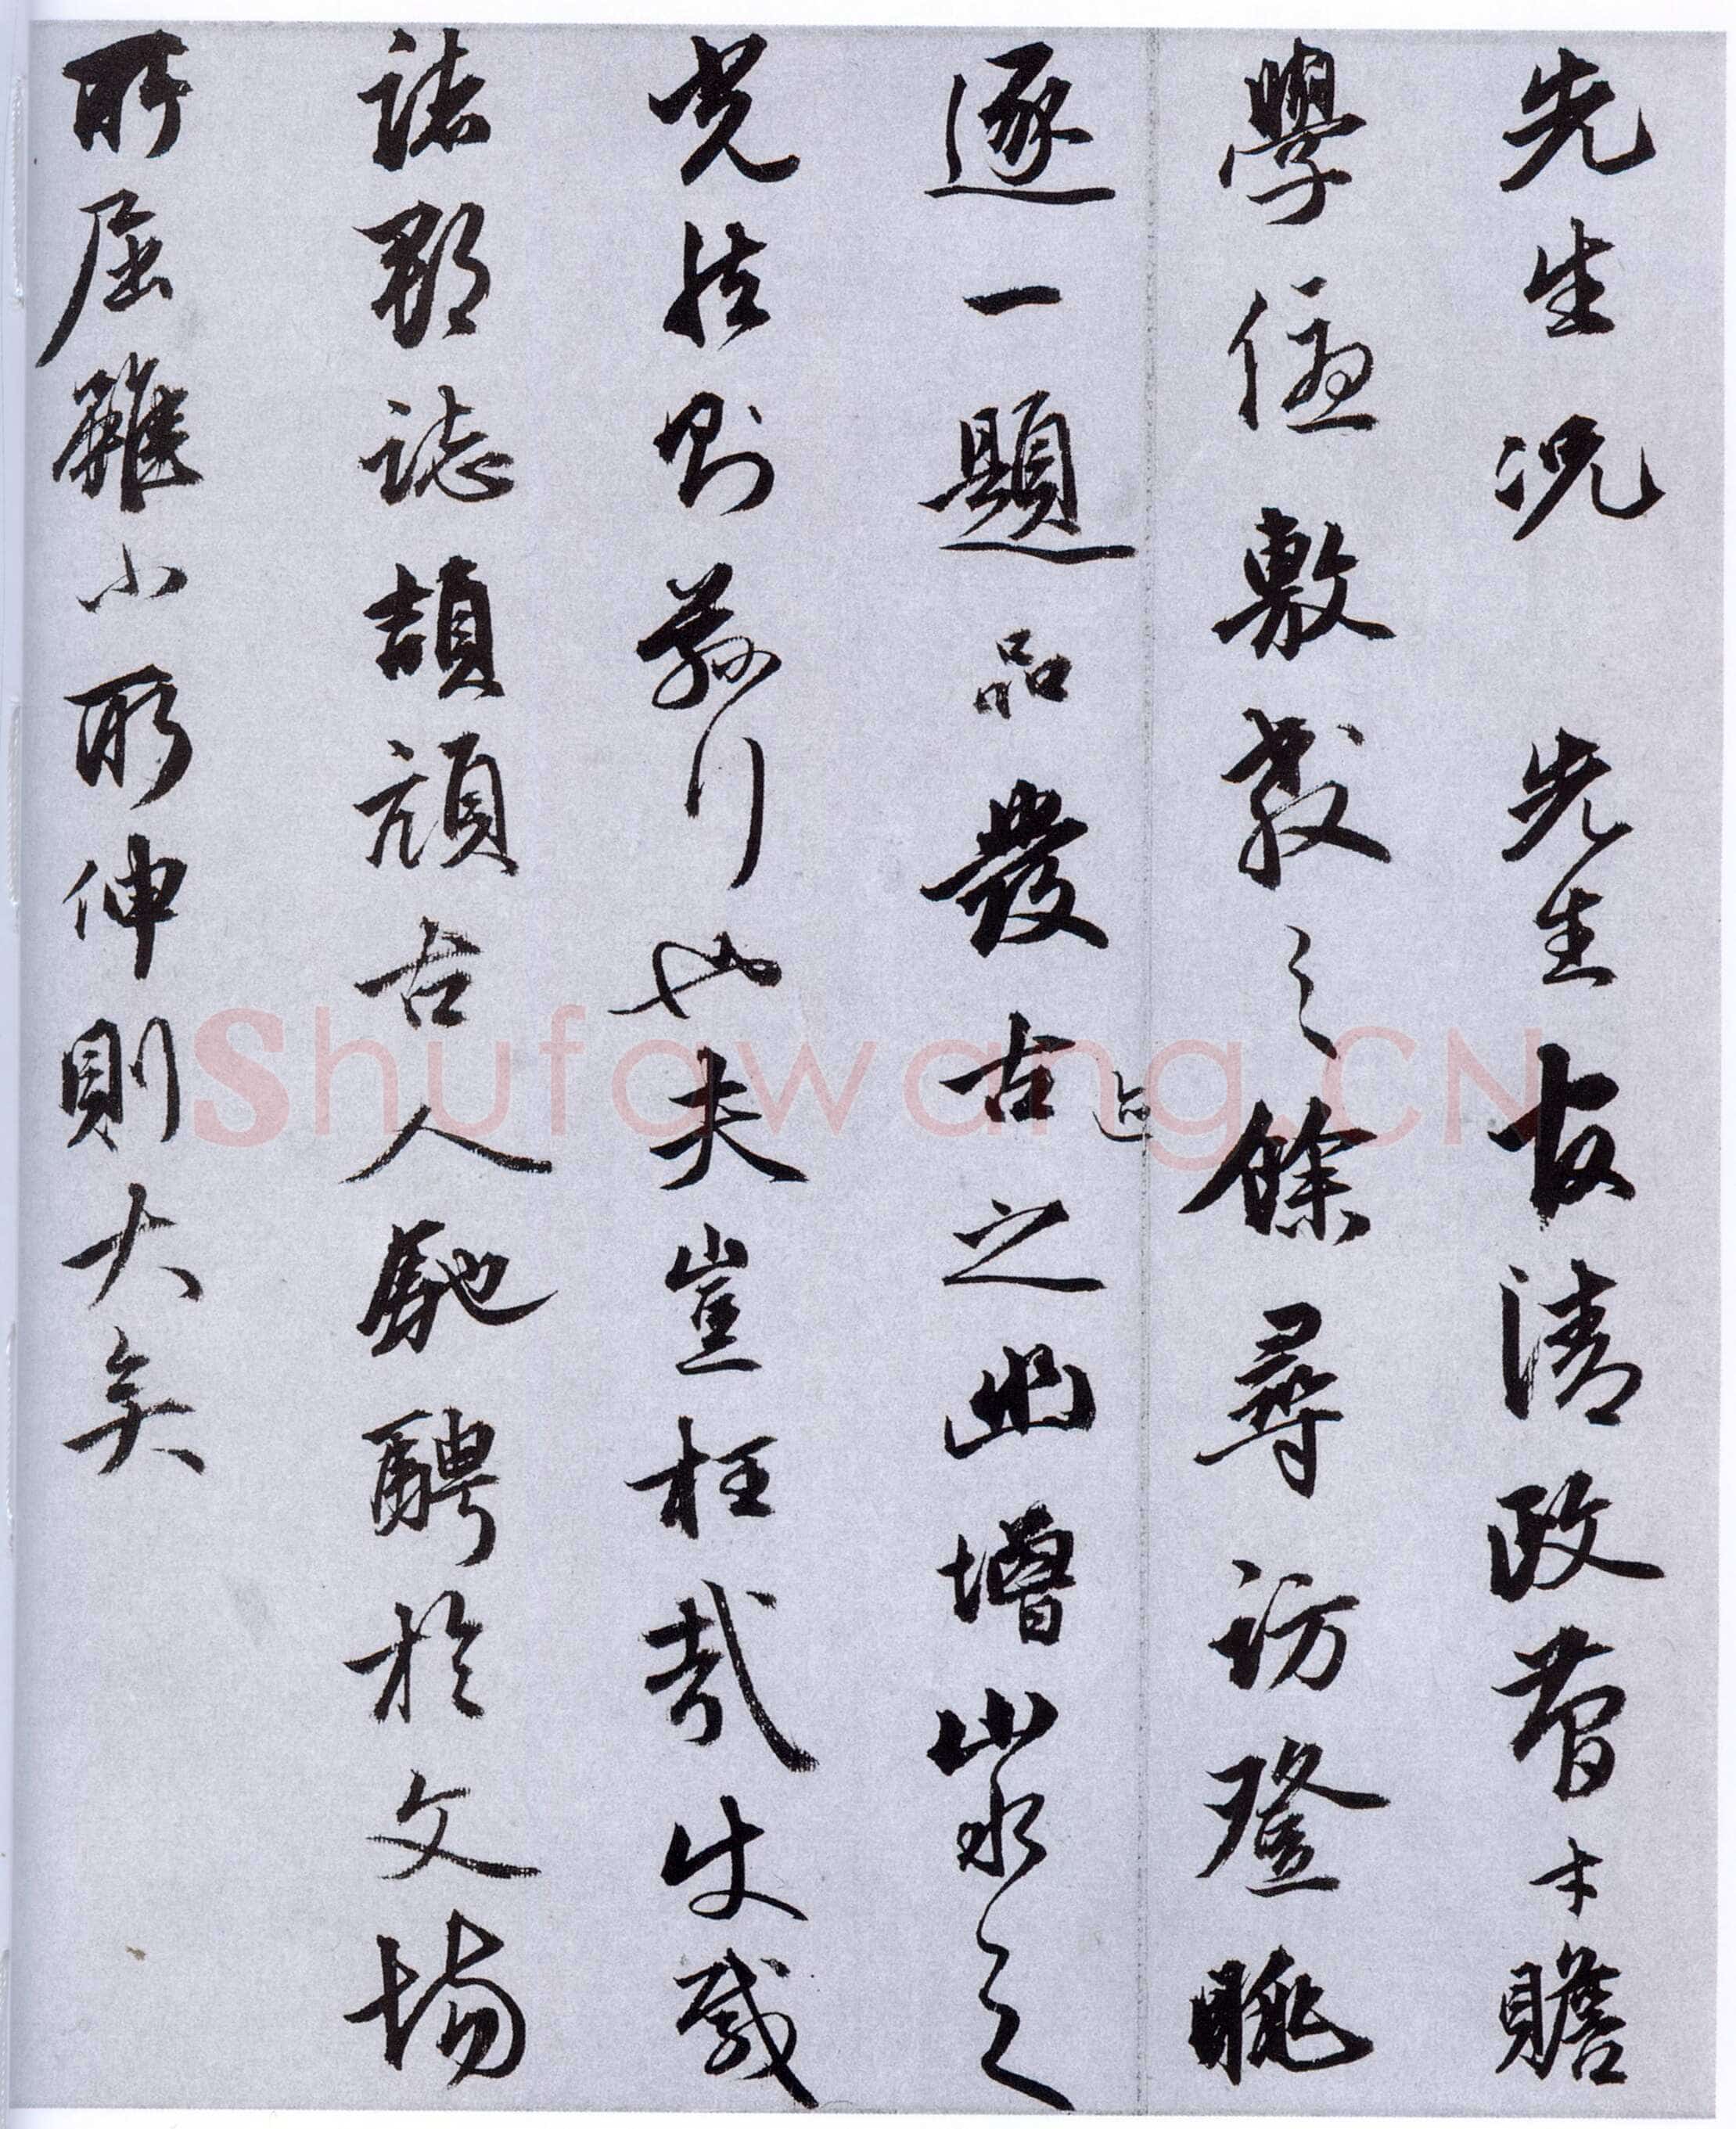 先生况 先生官清政簡才贍
學優敷教之餘尋訪登眺
逐一題品發古迹之幽增山水之
光然則茲行也夫豈枉哉使載
諸郡誌頡頏古人馳騁於文場
所屈雖小所伸則大矣
Shufawang.CN